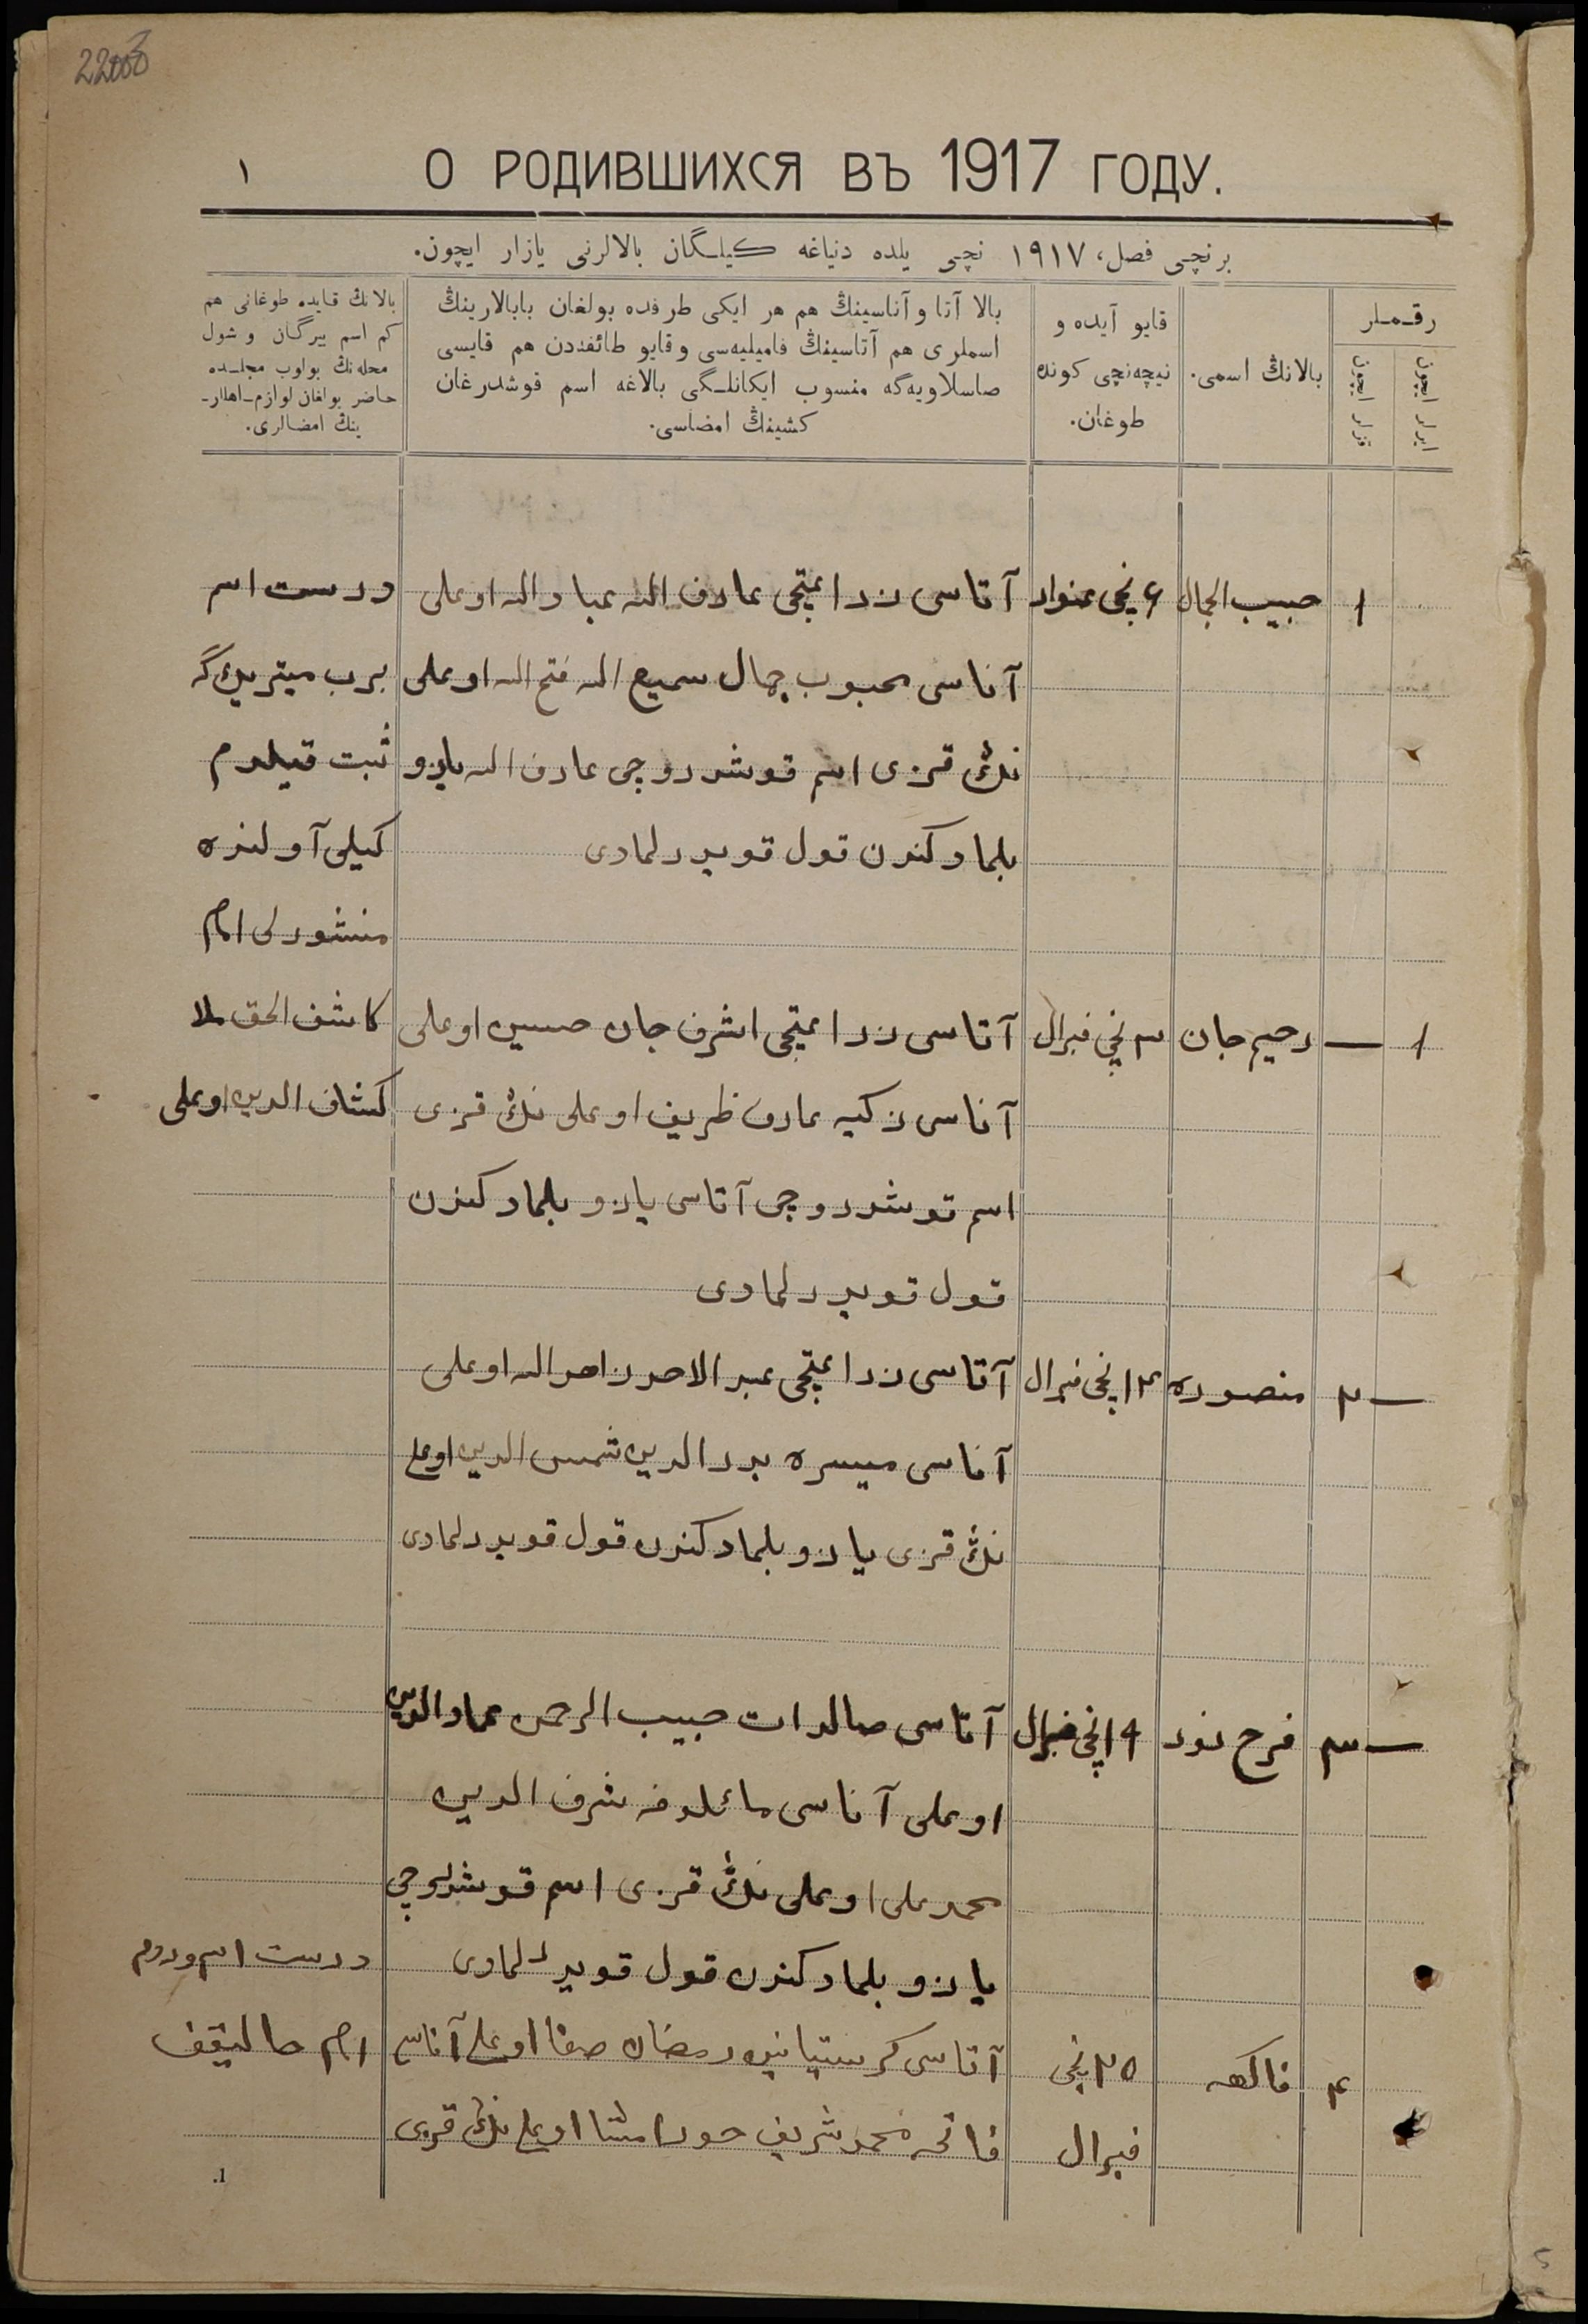 О РОДИВШИХСЯ ВЪ 1917 ГОДУ.
١
برنچی فصل، ١٩١٧ نچی یلده دنیاغه کیلـگان بالالرنی یازار ایچون.
رقـملر
ایرلر ایچون
قزلر ایچون
بالانڭ اسمی.
قایو آیده و
نیچه‌نچی کونده
طوغان.
بالا آتا و آناسینڭ هم هر ایکی طرفده بولغان بابالارینڭ
اسملری هم آتاسینڭ فامیلیه‌سی و قایو طائفه‌دن هم قایسی
صاسلاویه‌گه منسوب ایکانلـگی بالاغه اسم قوشدرغان
کشینڭ امضاسی.
بالانڭ قایده طوغانی هم
کم اسم بیرگان و شول
محله‌نڭ بولوب مجلـده
حاضر بولغان لوازم‌ـاهللرـ
ینڭ امضالری.
١
حبیب الجمال
٤ نچی غنوار
آتاسی زراعتچی عارف الله عباد الله اوغلی
آناسی محبوب جمال سمیع الله فتح الله اوغلی
نڭ قزی اسم قوشدروچی عارف الله یازو
بلمادکندن قول قویدرلمادی
درست اسم
برب میتریک گه
ثبت قیلدم
کیلی آولنده
منشورلی امام
کاشف الحق ملا
کشاف الدین اوغلی
١ —
رحیم جان
٣ نچی فبرال
آتاسی زراعتچی اشرف جان حسین اوغلی
آناسی زکیه عارف ظریف اوغلی نڭ قزی
اسم قوشدروچی آتاسی یازو بلمادکندن
قول قویدرلمادی
— ٢
منصوره
١٢ نچی فبرال
آتاسی زراعتچی عبد الاحد زاهد الله اوغلی
آناسی میسره بدر الدین شمس الدین اوغلی
نڭ قزی یازو بلمادکندن قول قویدرلمادی
— ٣
فرح نور
١٩ نچی فبرال
آتاسی صالدات حبیب الرحمن عماد الدین
اوغلی آناسی شرف الدین
محمد علی اوغلی نڭ قزی اسم قوشدروچی
یازو بلمادکندن قول قویدرلمادی
درست اسم ویردم
٤
فاکهه
٢٥ نچی
فبرال
آتاسی کرستیانین رمضان صفا اوغلی آناسی
فاتحه محمد شریف اوغلی نڭ قزی
1.